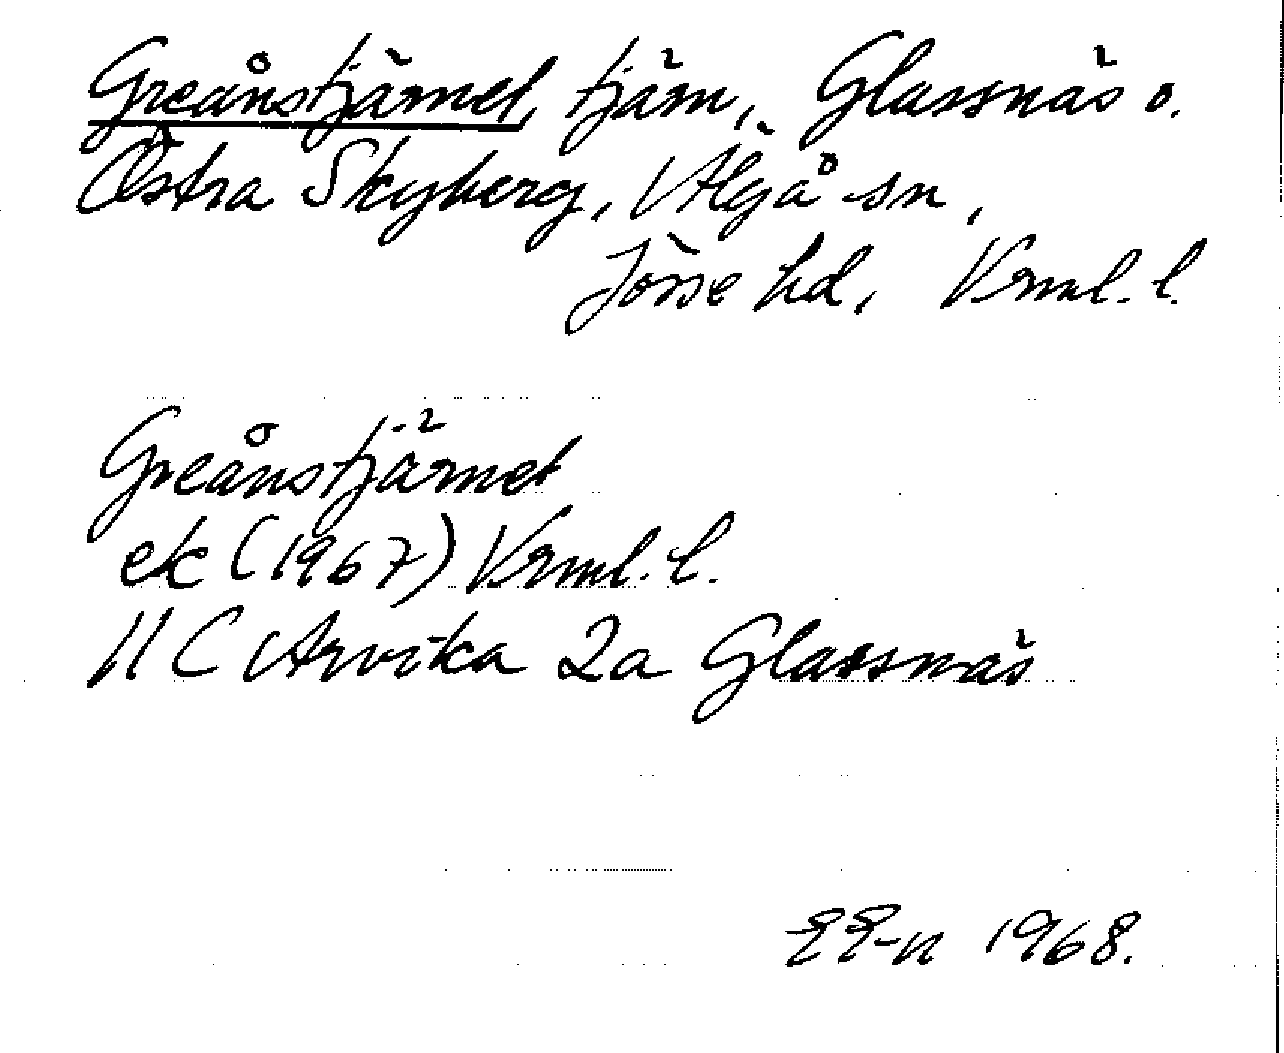 Greånstjärnet, tjärn, Glassnäs o.
Östra Skyberg, Älgå sn,
Jösse hd, Vrml. l.
Greånstjärnet
ek (1967) Vrml. l.
11 C Arvika 2a Glassnäs
1968.